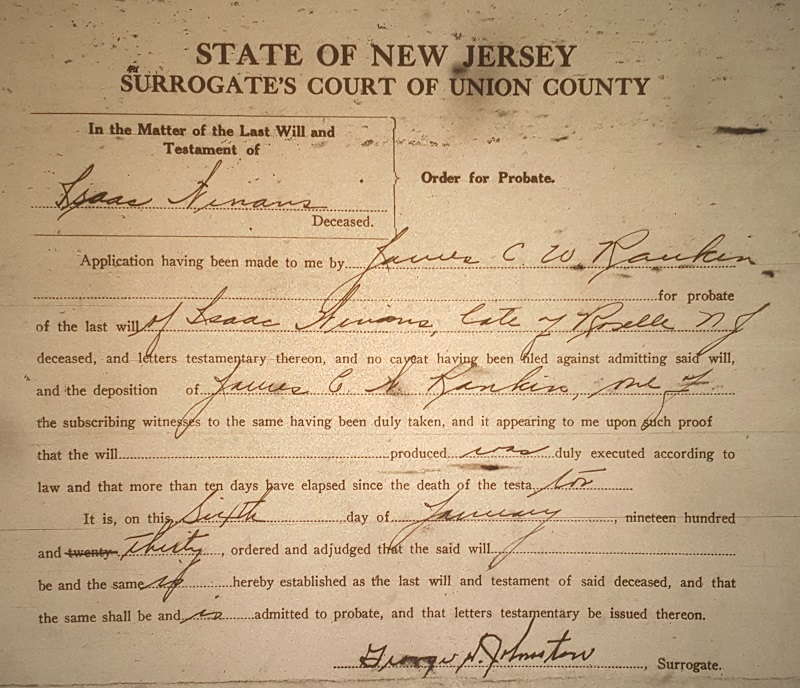 STATE OF NEW JERSEY
SURROGATE'S COURT OF UNION COUNTY
In the Matter of the Last Will and
Testament of
Isaac Ninans
Deceased.
Order for Probate.
Application having been made to me by James C. W. Rankin
for probate
of the last will of Isaac Ninans, late of Roselle N J
deceased, and letters testamentary thereon, and no caveat having been filed against admitting said will,
and the deposition of James C. W. Rankin, one of
the subscribing witnesses to the same having been duly taken, and it appearing to me upon such proof
that the will produced was duly executed according to
law and that more than ten days have elapsed since the death of the testa tor
It is, on this Sixth day of January, nineteen hundred
and twenty Thirty, ordered and adjudged that the said will
be and the same is hereby established as the last will and testament of said deceased, and that
the same shall be and is admitted to probate, and that letters testamentary be issued thereon.
George S. Johnston, Surrogate.